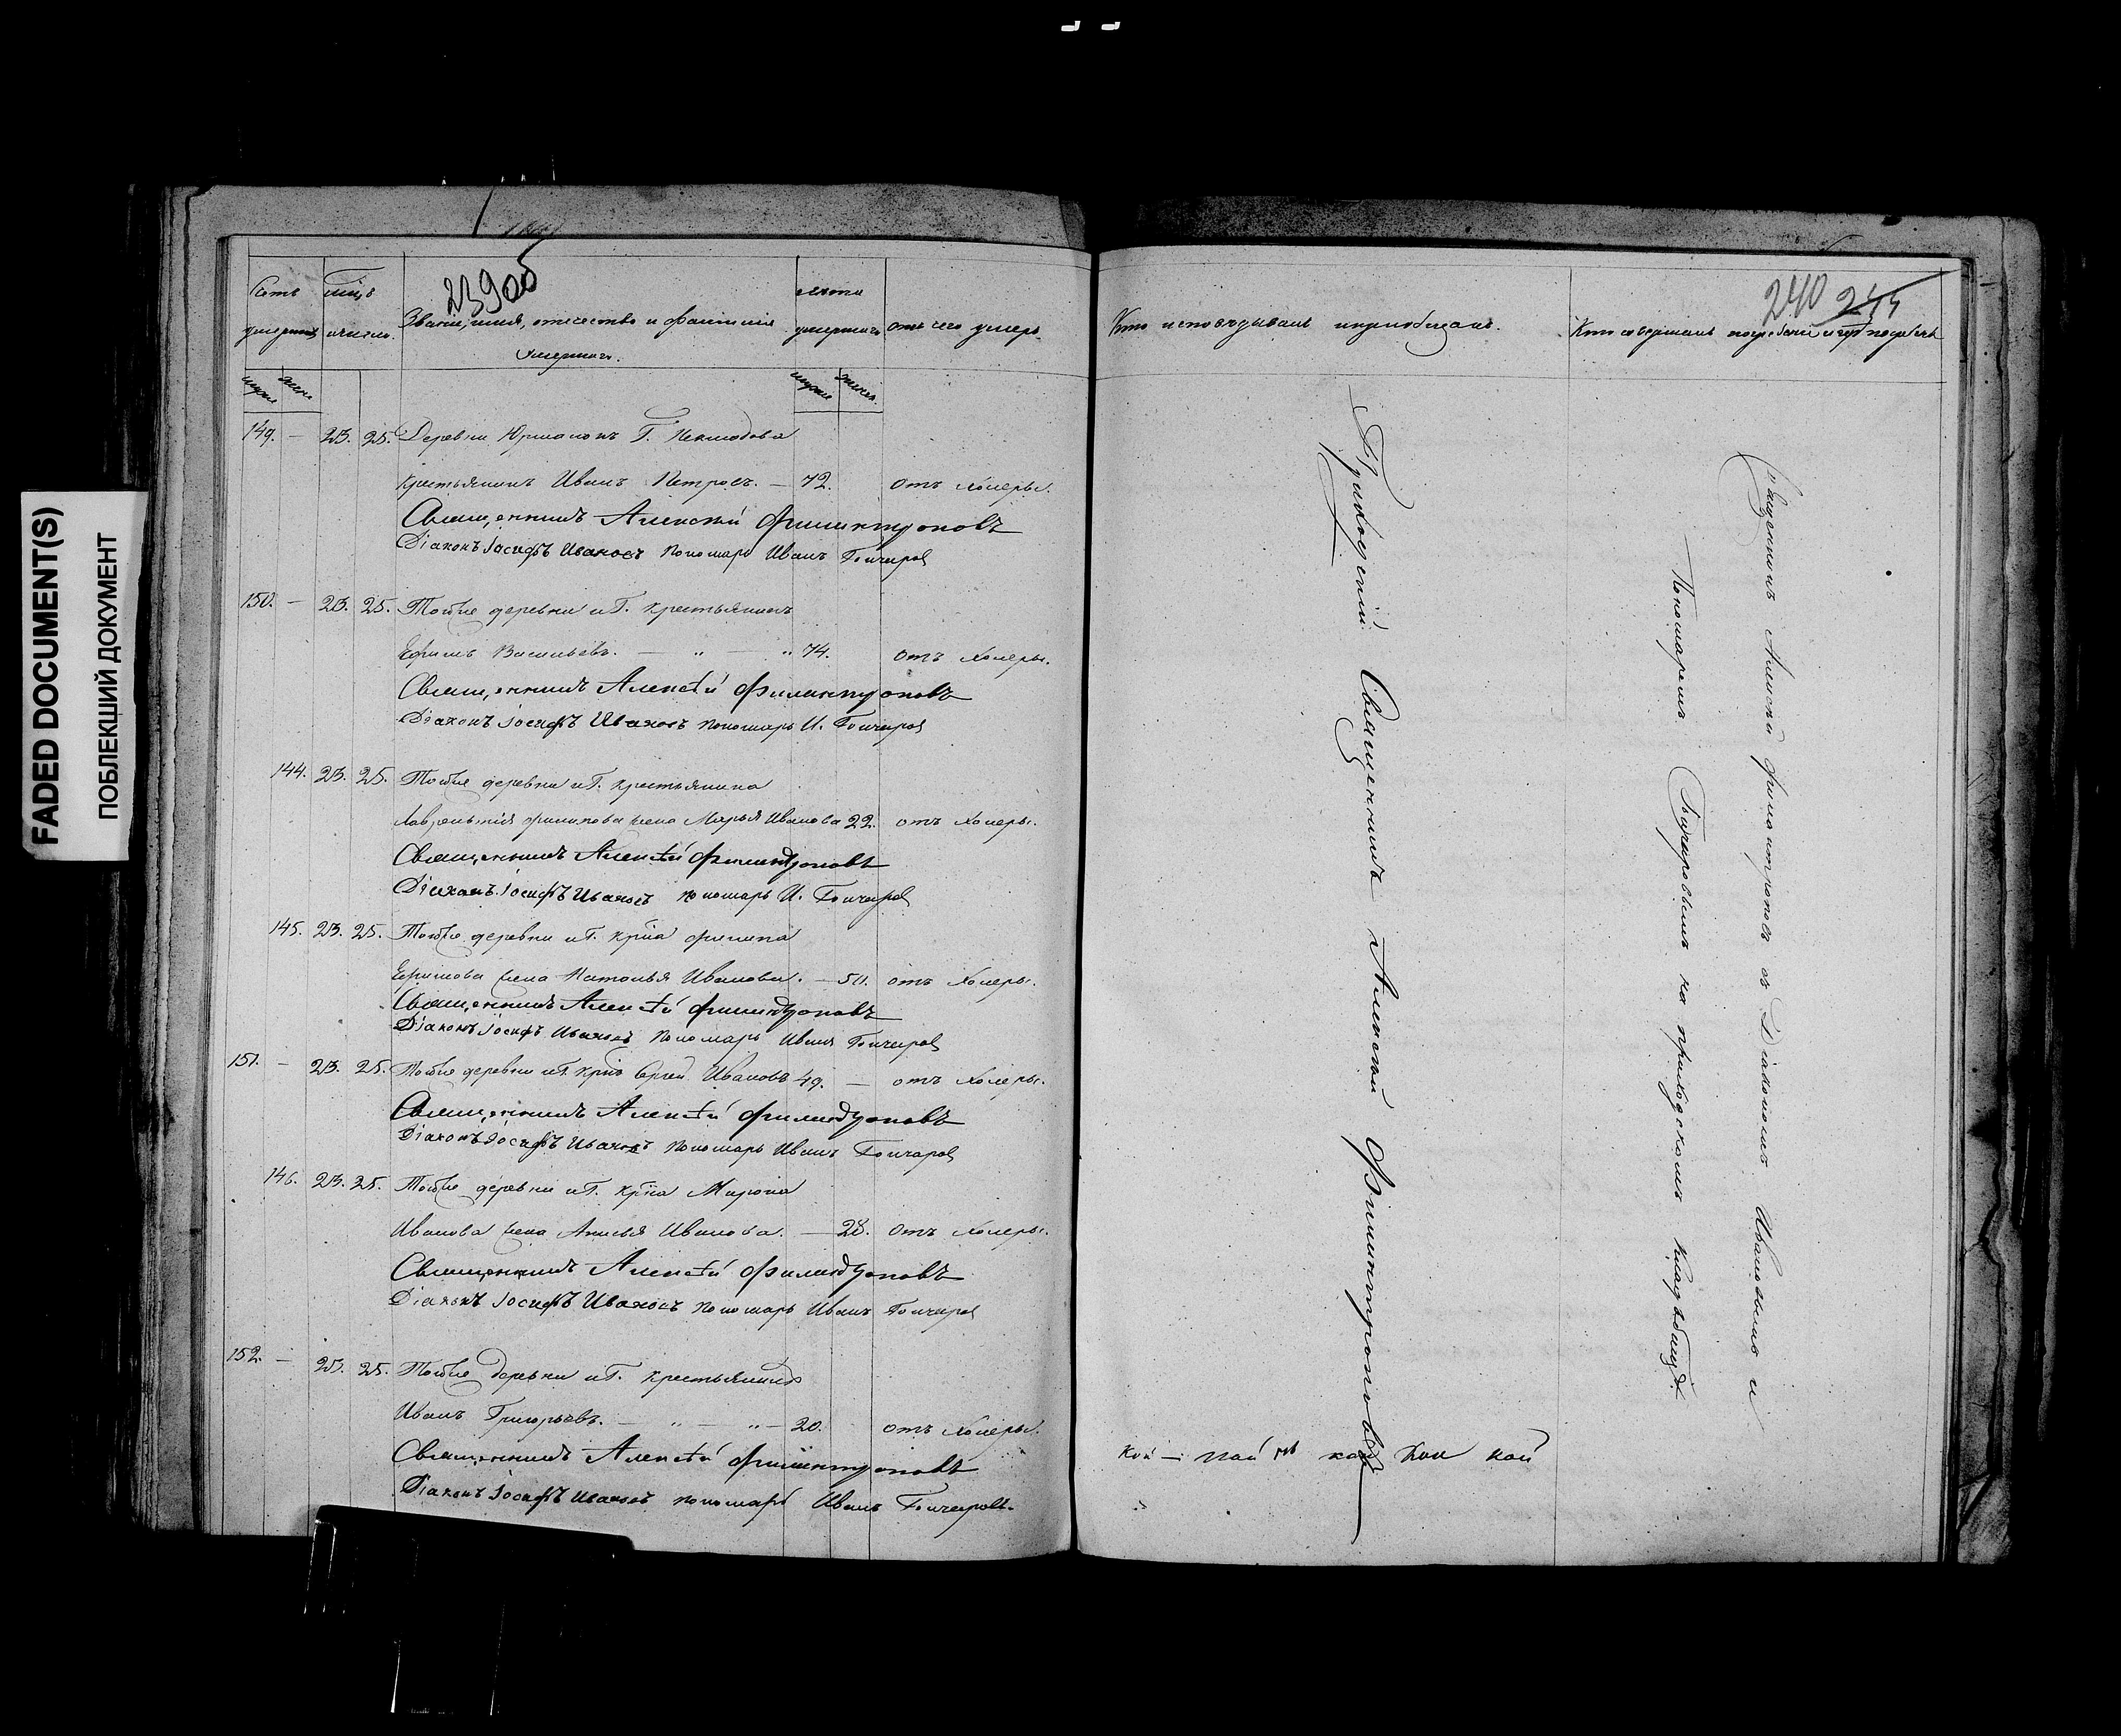 FADED DOCUMENT(S)
ПОБЛЕКШИЙ ДОКУМЕНТ
239об
Счетъ умершихъ
Мѣсяцъ и число.
Званіе, имя, отечество и фамилія умершаго.
лѣта умершаго
отъ чего умеръ.
муж. жен.
муж. женск.
149. — 23. 25. Деревни Г.
крестьянинъ Иванъ Петровъ. — 72. отъ холеры.
Священникъ Алексѣй Филантроповъ
Діаконъ Іосифъ Ивановъ пономарь Иванъ Гончаровъ
150. — 23. 25. Тойже деревни и Г. крестьянинъ
Ефимъ Васильевъ. — „ — „ 74. отъ холеры.
Священникъ Алексѣй Филантроповъ
Діаконъ Іосифъ Ивановъ пономарь И. Гончаровъ
144. 23. 25. Тойже деревни и Г. крестьянина
Лаврентія Филипова жена Марья Иванова 22. отъ холеры.
Священникъ Алексѣй Филантроповъ
Діаконъ Іосифъ Ивановъ пономарь И. Гончаровъ
145. 23. 25. Тойже деревни и Г. крна Филипа
Ефимова жена Наталья Иванова. — 50. отъ холеры.
Священникъ Алексѣй Филантроповъ
Діаконъ Іосифъ Ивановъ пономарь Иванъ Гончаровъ
151. — 23. 25. Тойже деревни и Г. крнъ Сергѣй Ивановъ 49. — отъ холеры.
Священникъ Алексѣй Филантроповъ
Діаконъ Іосифъ Ивановъ пономарь Иванъ Гончаровъ
146. 23. 25. Тойже деревни и Г. крна Мирона
Иванова жена Анисья Иванова. — 28. отъ холеры.
Священникъ Алексѣй Филантроповъ
Діаконъ Іосифъ Ивановъ пономарь Иванъ Гончаровъ
152. — 23. 25. Тойже деревни и Г. крестьянинъ
Иванъ Григорьевъ. — „ — „ — 20. отъ холеры.
Священникъ Алексѣй Филантроповъ
Діаконъ Іосифъ Ивановъ пономарь Иванъ Гончаровъ.
240 244
Кто исповѣдывалъ и пріобщалъ.
Кто совершалъ погребеніе и гдѣ погребены
Приходскій Священникъ Алексѣй Филантроповъ
Священникъ Алексѣй Филантроповъ съ Діакономъ Ивановымъ и
Пономаремъ Гончаровымъ на приходскомъ кладбищѣ.